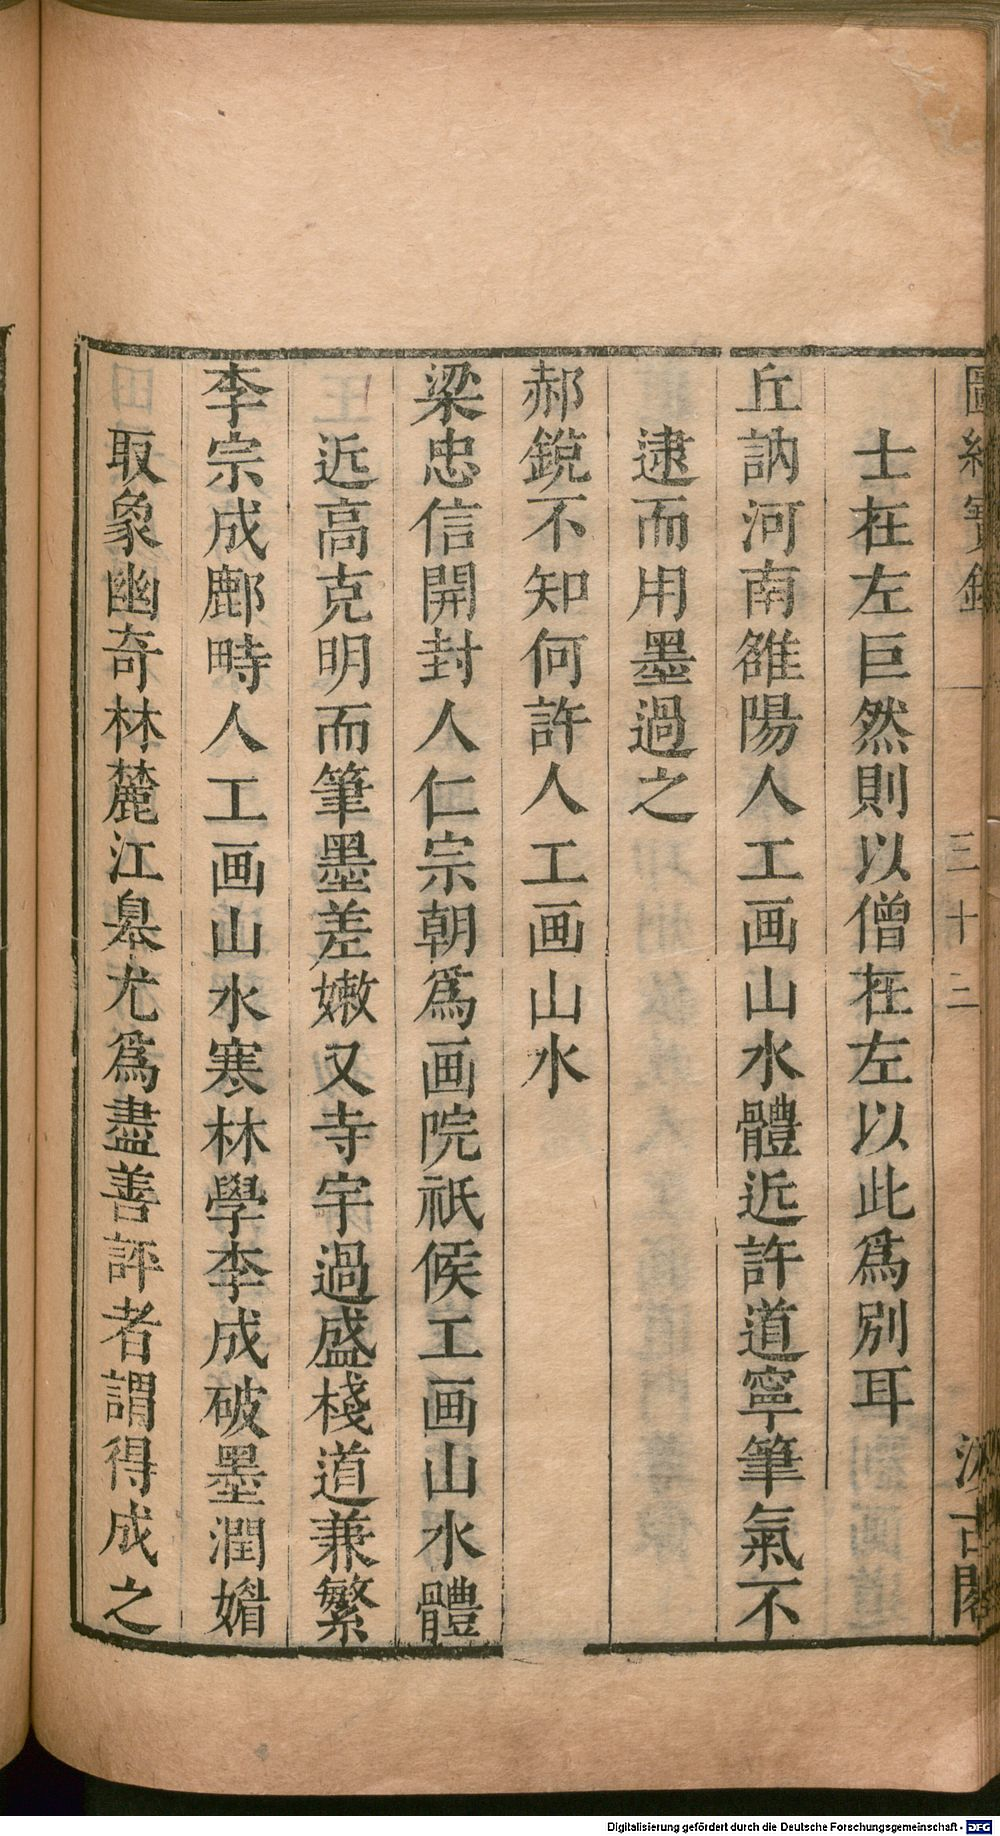 圖繪寶鑑 三十二 汲古閣
士在左巨然則以僧在左以此爲別耳
丘訥河南雒陽人工画山水體近許道寧筆氣不
逮而用墨過之
郝銳不知何許人工画山水
梁忠信開封人仁宗朝爲画院祇候工画山水體
近高克明而筆墨差嫩又寺宇過盛棧道兼繁
李宗成鄜畤人工画山水寒林學李成破墨潤媚
取象幽奇林麓江皋尤爲盡善評者謂得成之
Digitalisierung gefördert durch die Deutsche Forschungsgemeinschaft - DFG